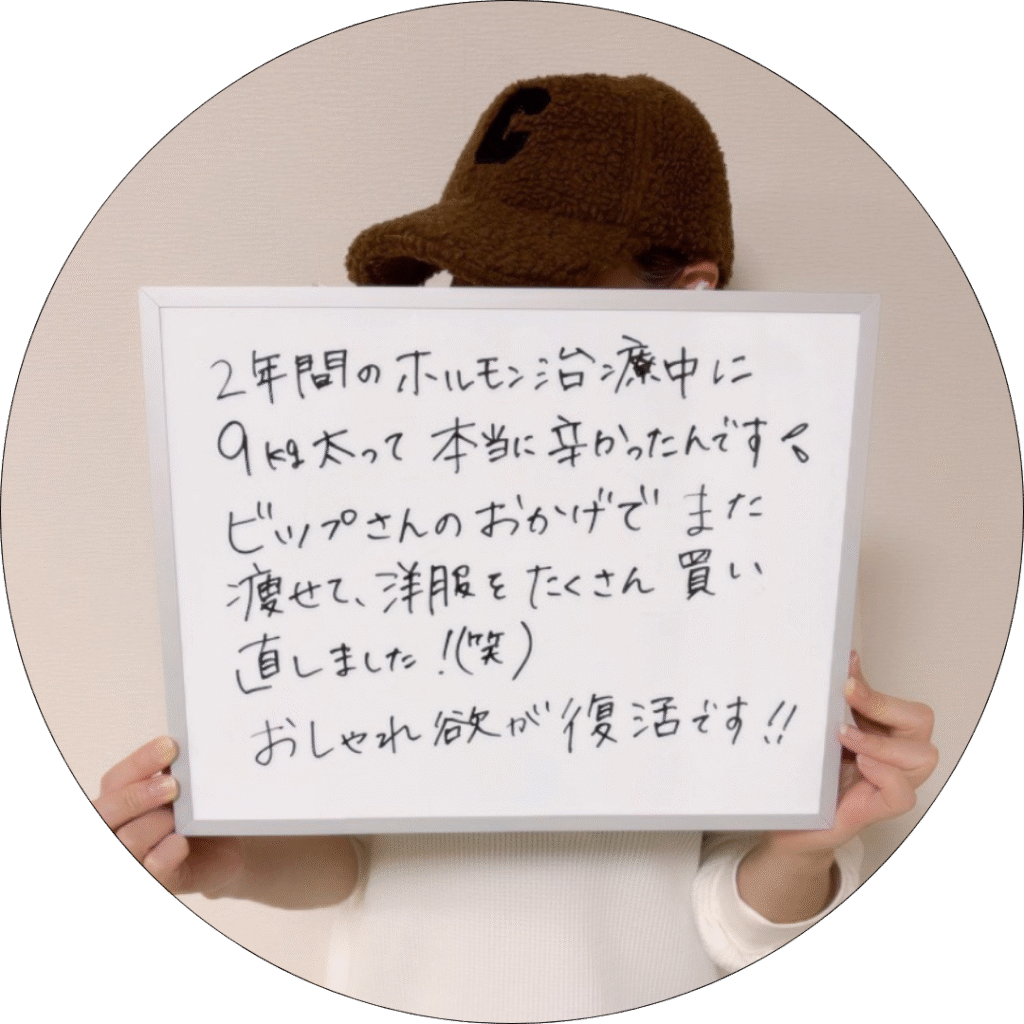 C
2年間のホルモン治療中に
9kg太って 本当に辛かったんです
ビップさんのおかげで また
痩せて、洋服をたくさん 買い
直しました!(笑)
おしゃれ欲が復活です!!